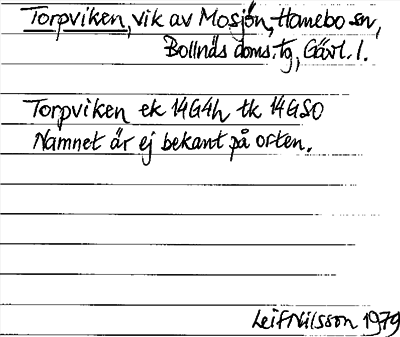 Torpviken, vik av Mosjön, Hanebo sn,
Bollnäs doms. tg, Gävl. l.
Torpviken ek 14G4h tk 14GSO
Namnet är ej bekant på orten.
Leif Nilsson 1979